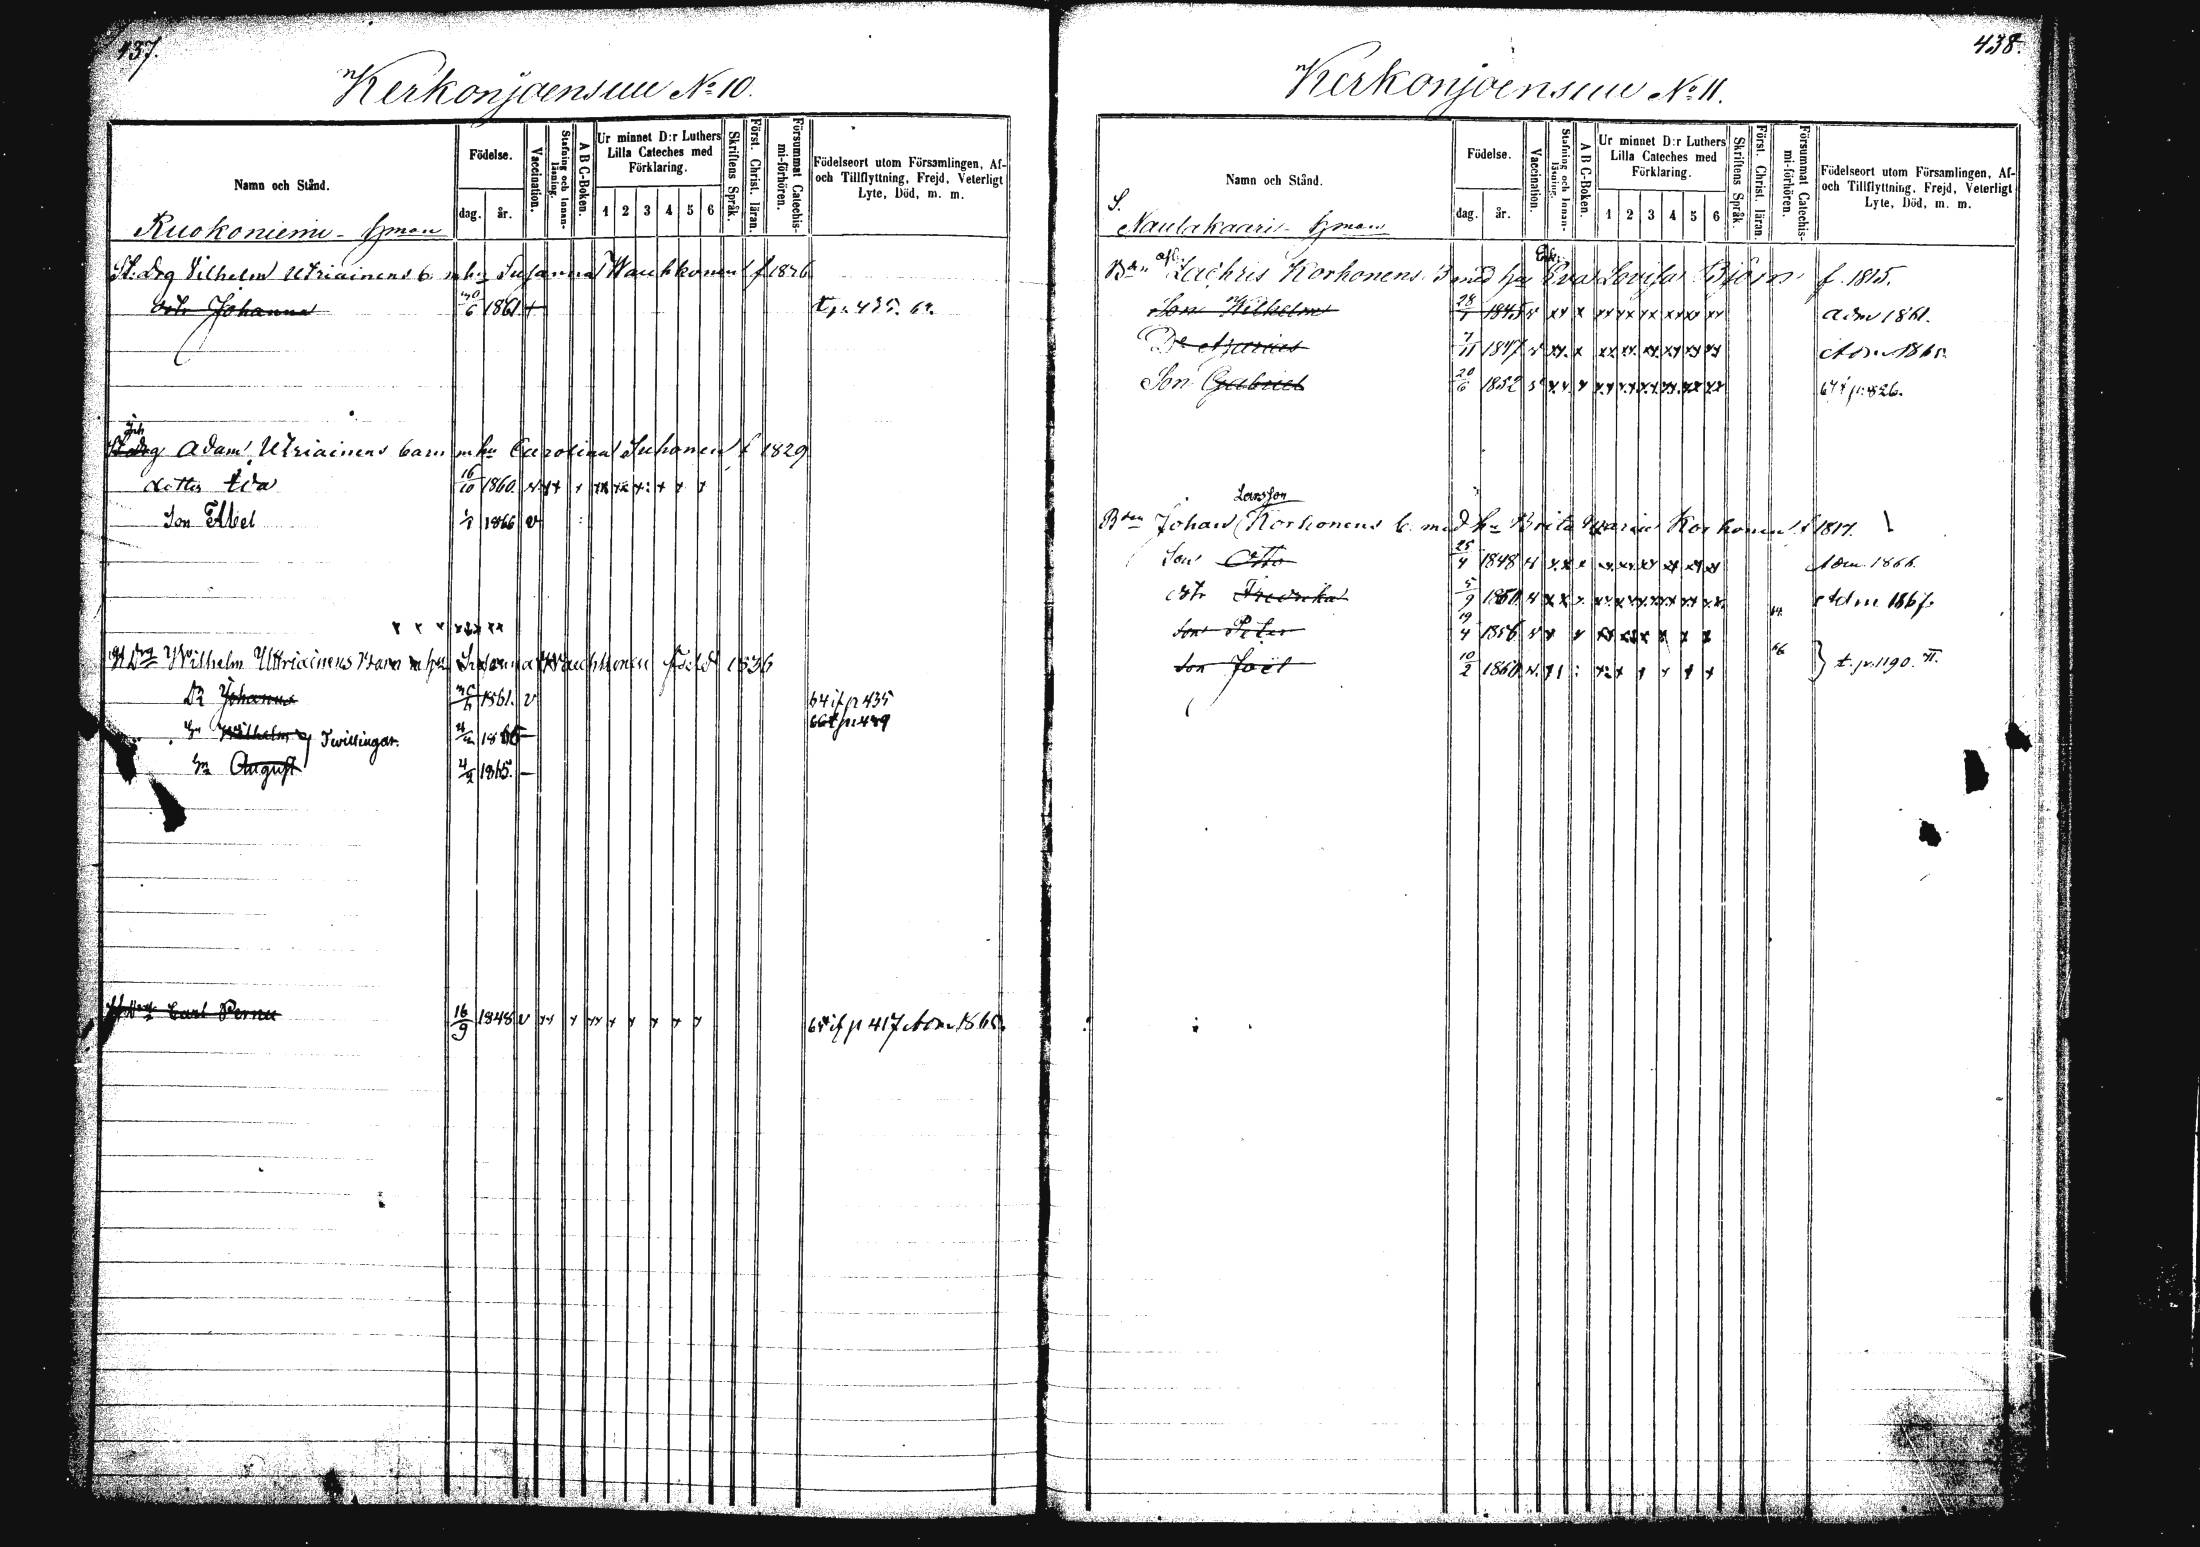 437.
Kerkonjoensuu No 10.
Namn och Stånd.
Födelse.
dag.
år.
Vaccination.
Stafning och Innan-läsning.
A B C-Boken.
Ur minnet D:r Luthers Lilla Cateches med Förklaring.
1 2 3 4 5 6
Skriftens Språk.
Först. Christ. läran.
Försummat Catechis-mi-förhören.
Födelseort utom Församlingen, Af- och Tillflyttning, Frejd, Veterligt Lyte, Död, m. m.
Ruokoniemi
St: drg Vilhelm Utriainens b. m hu Susanna Wauhkonen f 1836
dotr Johanna 6 1861 t p. 435. 64.
Inh
St drg Adam Utriainens barn m hu Carolina Suhonen f 1829
dotter Ida 16/10 1860. v x x
Son Abel 1866 v
x x x x x x x
Drg Wilhelm Uttriainens Barn m hu Susanna Wauchkonen född 1836
Dr Johanna 1861. v 64 if p 435
Sn Wilhelm } Twillingar. 1865 — 66 t p. 489
Sn August 4/2 1865. —
Carl Pernu 16/9 1848 v x x x x x x x x x x if p 417 Adm. 1865.
438.
Kerkonjoensuu No 11.
Namn och Stånd.
Födelse.
dag.
år.
Vaccination.
Stafning och Innan-läsning.
A B C-Boken.
Ur minnet D:r Luthers Lilla Cateches med Förklaring.
1 2 3 4 5 6
Skriftens Språk.
Först. Christ. läran.
Försummat Catechis-mi-förhören.
Födelseort utom Församlingen, Af- och Tillflyttning, Frejd, Veterligt Lyte, Död, m. m.
S.
Naulakaari
Enk:
Bden afl. Zachris Korhonens B med hu Eva Lovisa Björn f. 1815.
Son Wilhelm 28 1845 v xx x xx xx xx xx xx adm 1861.
Dr Maria 7/11 1847 v xx. x xx. xx. xx xx xx Adm. 1865.
Son Gabriel 20/6 1852 v x.x. x xx xx xx xx xx xx 67 t p. 826.
Larsson
Bden Johan Korhonens b. med hu Brita Maria Korhonen f 1817.
Son Otto 25/4 1848 v x x x xx. xx. xx xx xx xx Adm. 1866.
dotr Fredrika 5/9 1850 v x x x. xx. xx xx xx xx xx. Adm 1867.
Son Peter 19/4 1856 v x x xx xx x x x x 64
Son Joël 10/2 1860 v. x x x x x x 66 } t. p. 1190. II.